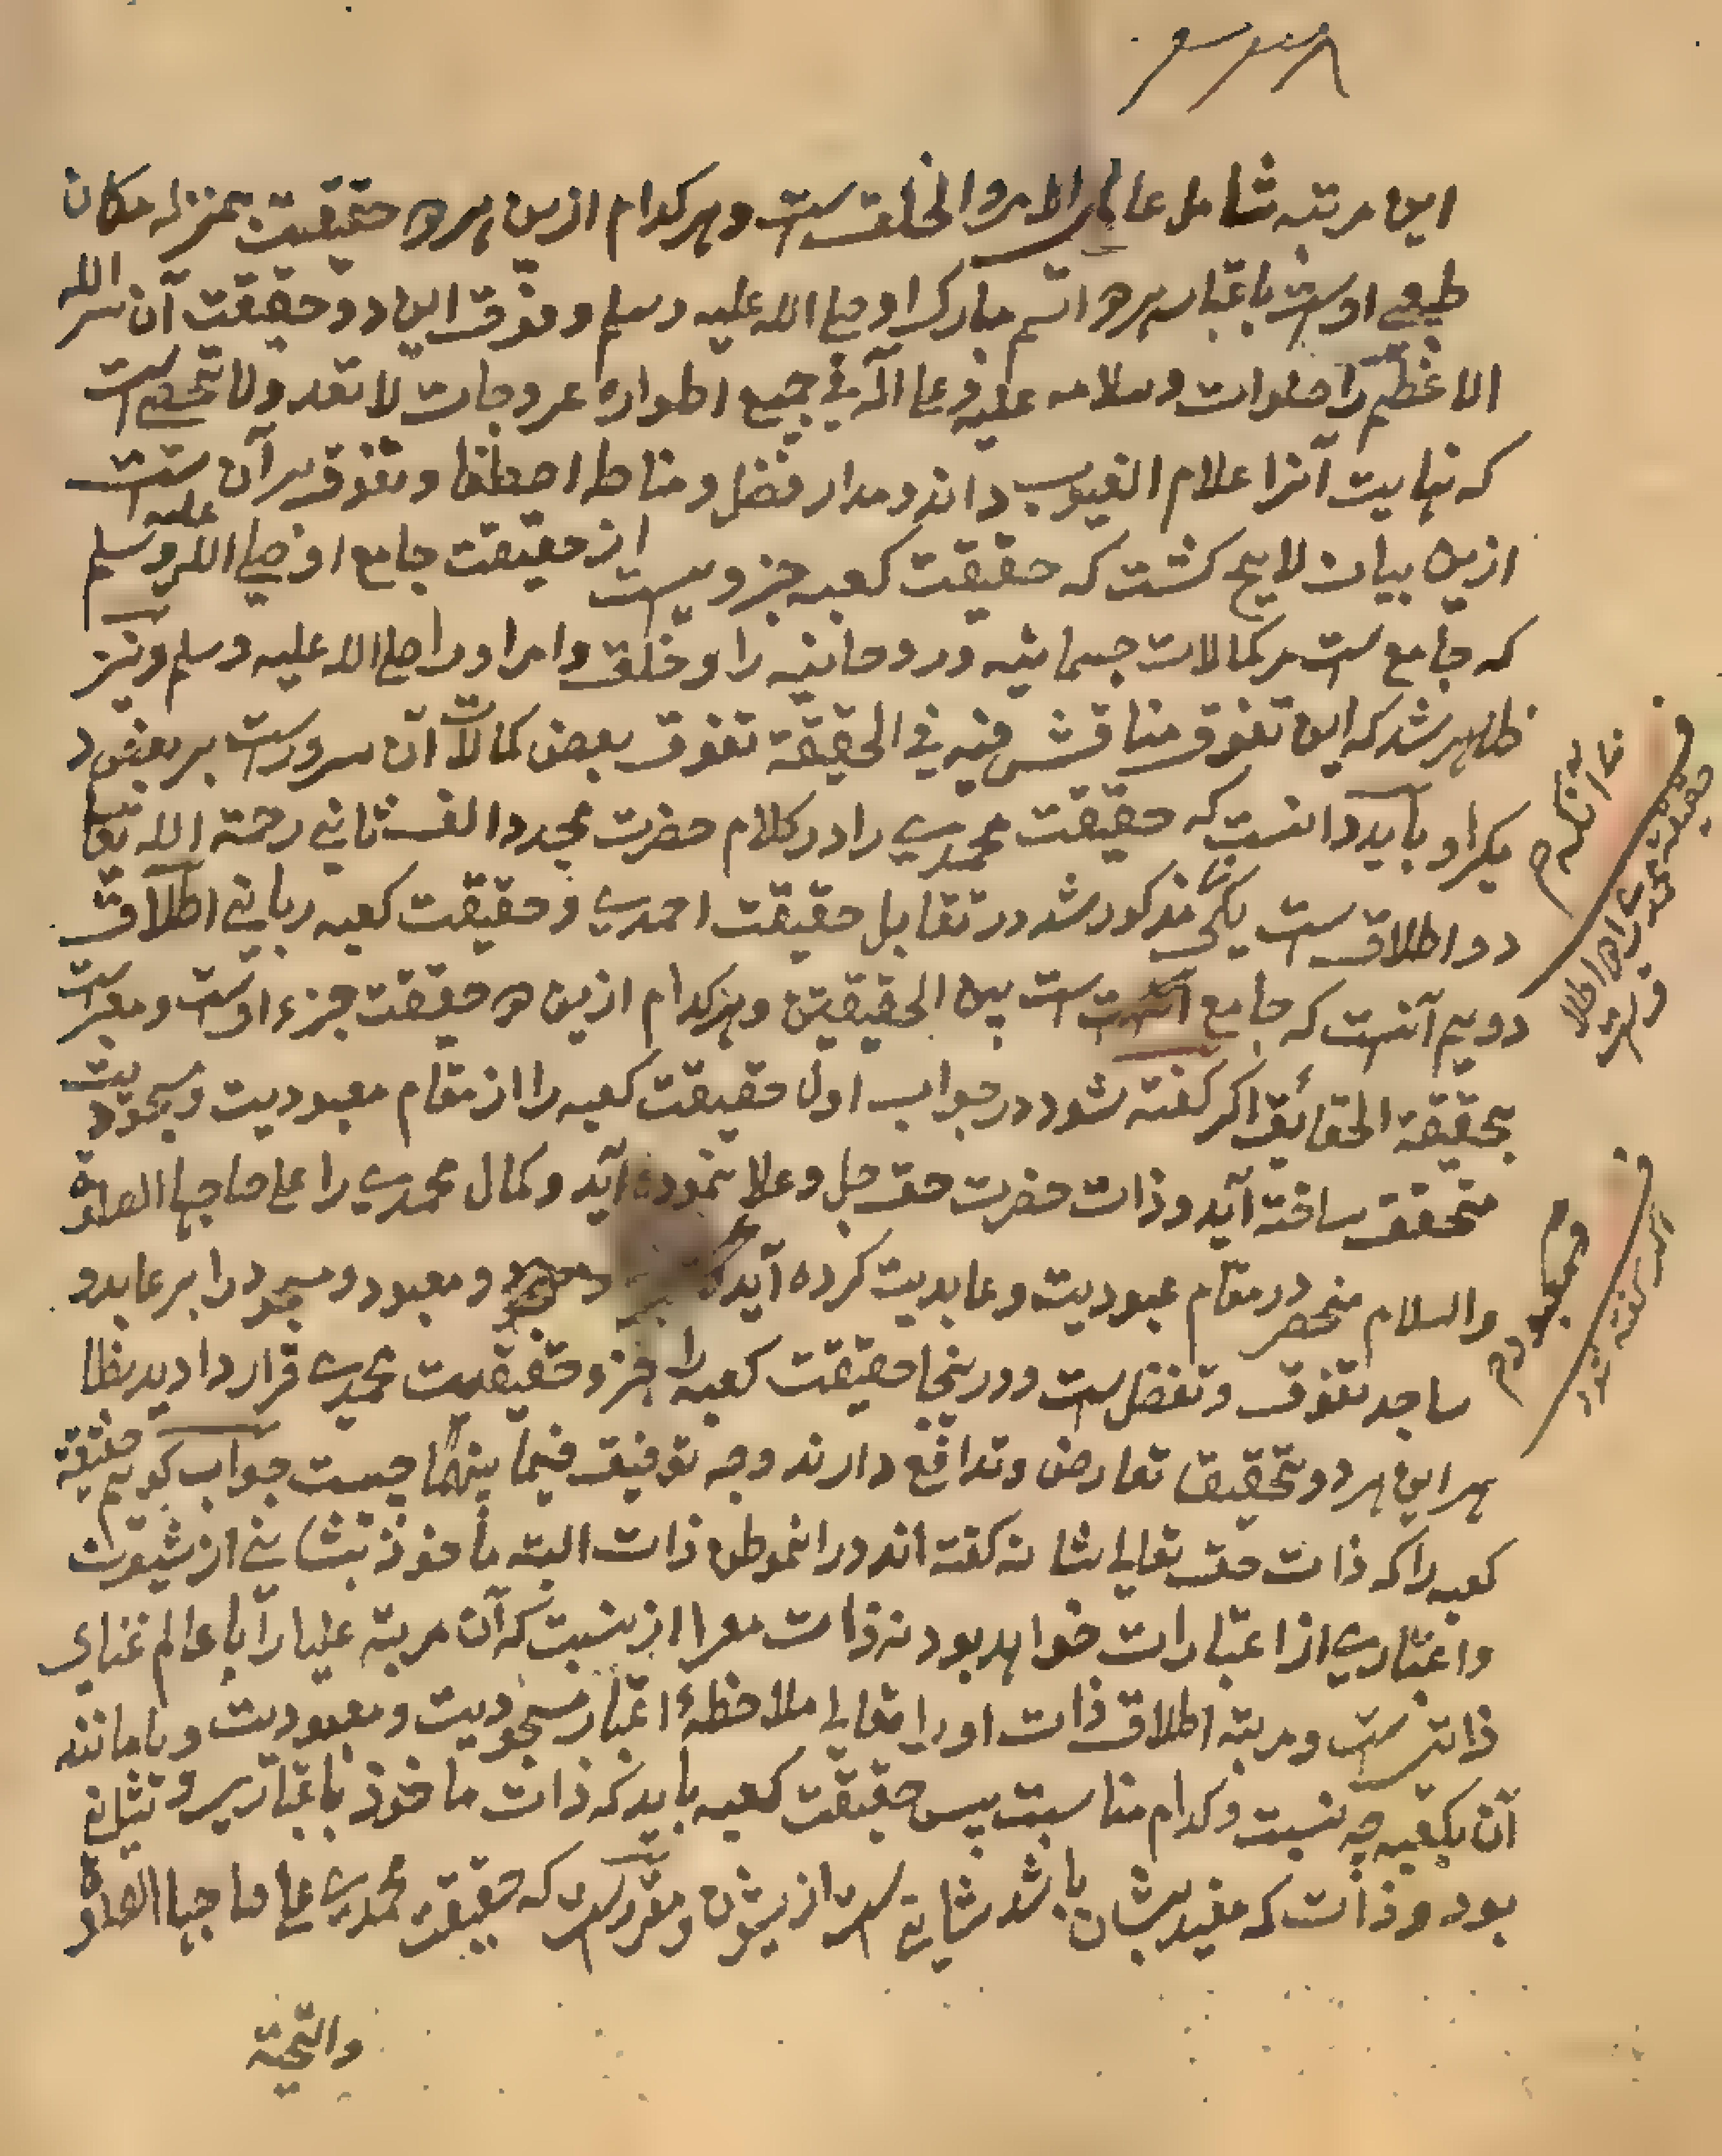 این مرتبه شامل عالم الامر و الخلق ست و هر کدام ازین هر دو حقیقت بمنزله مکان
طبیعی اوست باعتبار هر دو اسم مبارک او صلی الله علیه وسلم و فوق این دو حقیقت آن سر الله
الاعظم را صلوات و سلامه علیه و علی آله فی جمیع اطواره عروجات لا تعد ولا تحصی است
که نهایت آنرا علام الغیوب داند و مدار فضل و مناط اصطفا و تفوق بر آن ست
ازین بیان لایح کشت که حقیقت کعبه جزویست از حقیقت جامع او صلی الله علیه وسلم
که جامع ست مر کمالات جسمانیه و روحانیه را و خلق و امر او را صلی الله علیه وسلم و نیز
ظاهر شد که این تفوق مناقش فیه فی الحقیقة تفوق بعض کمالات آن سرورست بر بعض د
یکر او باید دانست که حقیقت محمدی را در کلام حضرت مجدد الف ثانی رحمة الله تعا
دو اطلاق ست یکی مذکور شد در تقابل حقیقت احمدی و حقیقت کعبه ربانی اطلاق
دویم آنست که جامع ست بین الحقیقتین و هر کدام ازین دو حقیقت جزء اوست و معبرست
بحقیقة الحقائق اکر کفته شود در جواب اول حقیقت کعبه را از مقام معبودیت و مسجودیت
متحقق ساخته آید و ذات حضرت حق جل و علا نموده آید و کمال محمدی را علی صاحبها الصلوة
والسلام منحصر در مقام عبودیت و عابدیت کرده آید و معبود و مسجود را بر عابد و
ساجد تفوق و تفضل ست و درینجا حقیقت کعبه را جزو حقیقت محمدی قرار داده دید بظا
هر این هر دو تحقیق تعارض و تدافع دارند وجه توفیق فیما بینهما چیست جواب کویم حقیقة
کعبه را که ذات حق تعالی شانه کفته اند در انموطن ذات البته ماخوذ بشانی از شیونات
و اعتباری از اعتبارات خواهد بود نه ذات معرا از نسبت که آن مرتبه علیا را با عالم غنای
ذاتیست و مرتبه اطلاق ذات او را تعالی ملاحظهٔ اعتبار مسجودیت و معبودیت و یا مانند
آن بکعبه چه نسبت و کدام مناسبت پس حقیقت کعبه باید که ذات ماخوذ باعتباری و
بود و ذات که مقید بشان باشد شانی ست از شیون و مقررست که حقیقت محمدی علی صاحبها الصلوة
والتحیة